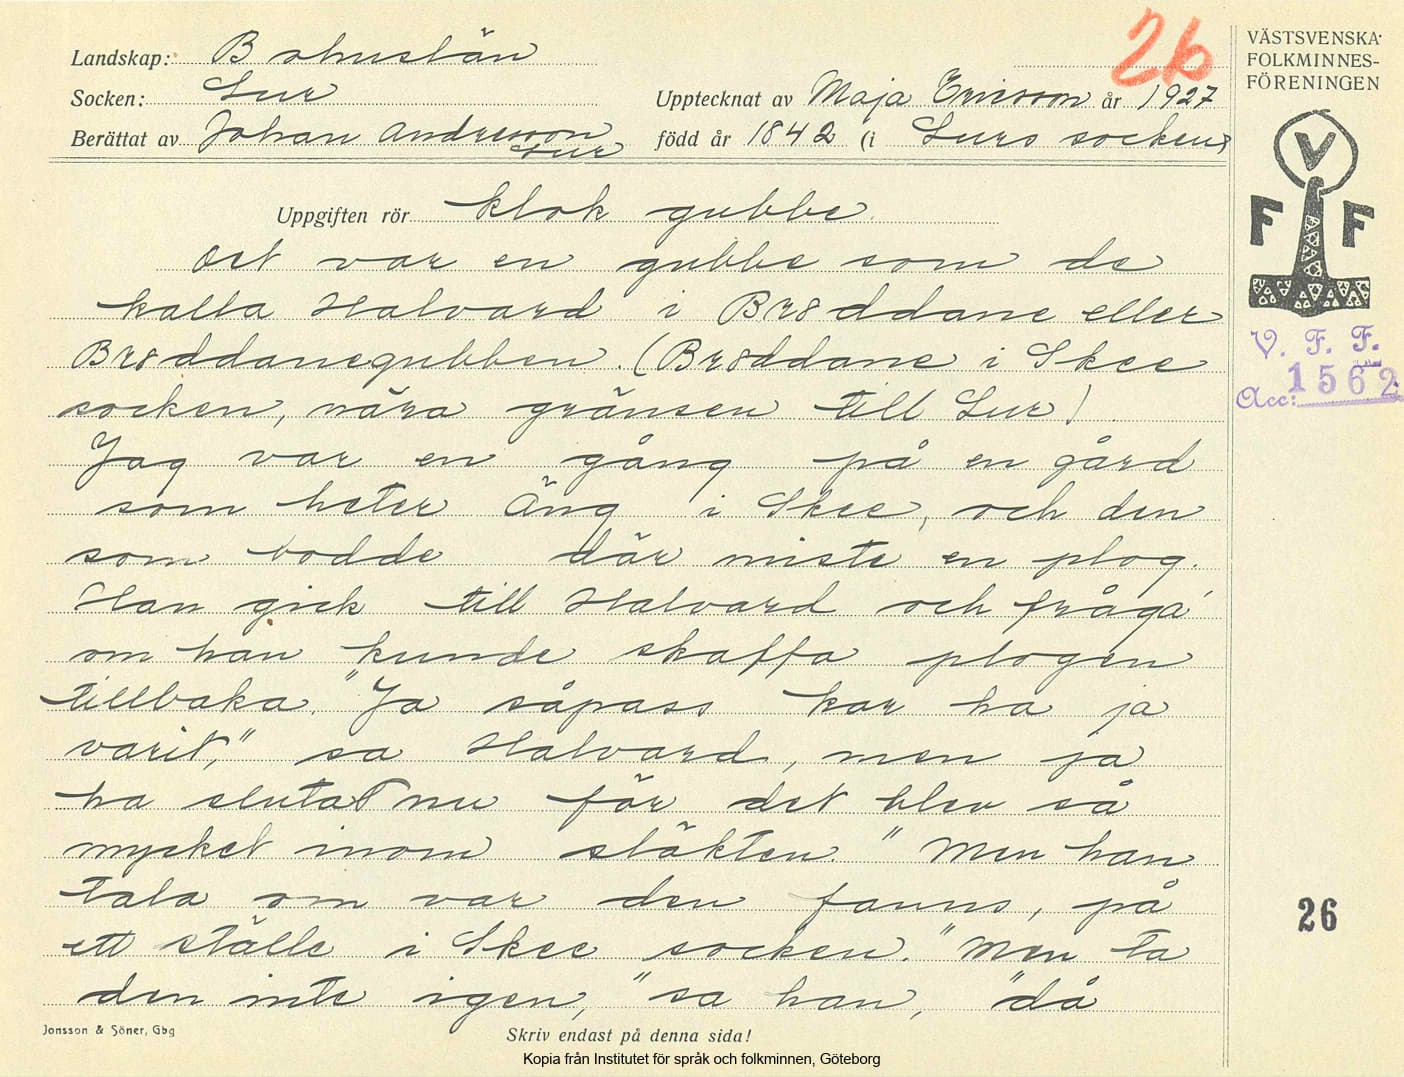 26
Landskap: Bohuslän
Socken: Lur
Upptecknat av Maja Ericsson år 1927
Berättat av Johan Andersson Lur
född år 1842 (i Lurs socken)
VÄSTSVENSKA
FOLKMINNES-
FÖRENINGEN
V
F F
V. F. F.
Acc: 1562
Uppgiften rör klok gubbe
Det var en gubbe som de
kalla Halvard i Bröddane eller
Bröddanegubben. (Bröddane i Skee
socken, nära gränsen till Lur)
Jag var en gång på en gård
som heter Äng i Skee, och den
som bodde där miste en plog.
Han gick till Halvard och fråga'
om han kunde skaffa plogen
tillbaka. "Ja såpass kar ha ja
varit," sa Halvard, men ja
ha slutat nu för det blev så
mycket inom släkten." Men han
tala om var den fanns, på
ett ställe i Skee socken. "Men ta
den inte igen," sa han, "då
26
Jonsson & Söner, Gbg
Skriv endast på denna sida!
Kopia från Institutet för språk och folkminnen, Göteborg